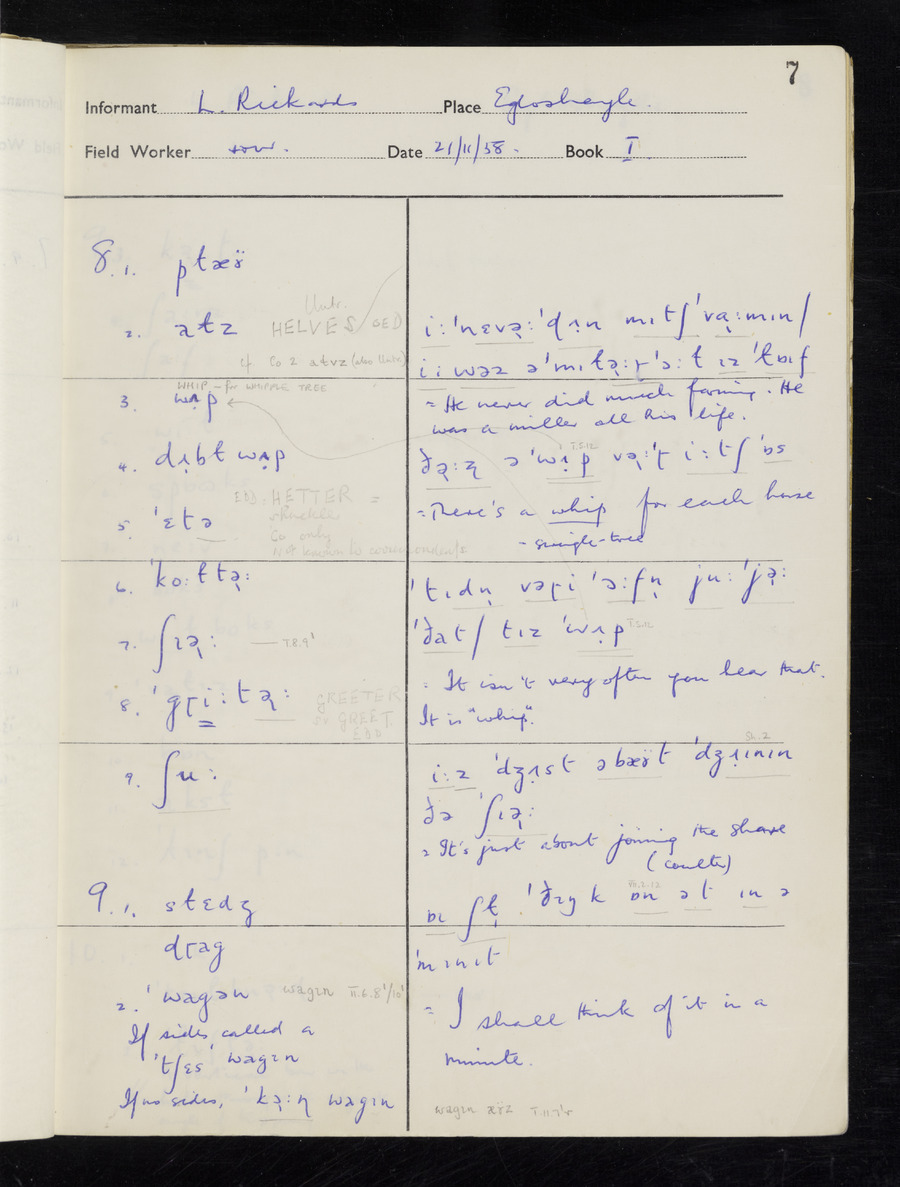 7
Informant L. Rickards Place Egloshayle.
Field Worker Date 21/11/58. Book I
8.1. ptæɤ̈
2. atz HELVES OED
cf. Co 2 atvz (also Untr.)
WHIP - for WHIPPLE TREE
3. wʌp
4. dɹ̣bt wʌ̣p
EDD. HETTER =
shackle
Co only
Not known to correspondents
5. ˈɛtə
6. ˈko:ttə̢:
7. ʃɪə̢: — T.8.9'
8. ˈgɽi:tə̢: GREETER
or GREET.
EDD
9. ʃu:
9.1. stɛdʒ
dɽag
2. ˈwagən wagɪn II.6.8'/10'
If sides, called a
ˈtʃɛs wagɪn
If no sides, ˈkə̢:ɳ wagɪn
i:ˈnɛvə̢:ˈdɪ̣n mɪtʃˈva̢:mɪn/
i: wəz əˈmɪtə̢:ɽˈɔ:t ɪz ˈtɒɪf
= He never did much farming. He
was a miller all his life.
ðə̢:ʐ əˈwɪ̣p və̢:ˈɽ i:tʃ ˈɒs
= There's a whip for each horse
- single-tree
ˈtɪdṇ vəɽi ˈɔ:fṇ ju: ˈjə̢:
ˈðat/ tɪz ˈwʌ̣p T.5.12
= It isn't very often you hear that.
It is "whip".
i:z ˈdʒʌst əbæɤ̈t ˈdʒʌɪnɪn
ðə ˈʃɪə̢:
= It's just about joining the share
(coulter)
ɒɪ ʃt̩ ˈðɪŋk ɒn ət ɪn ə
ˈmɪnɪt
= I shall think of it in a
minute.
wagɪn æɤ̈z